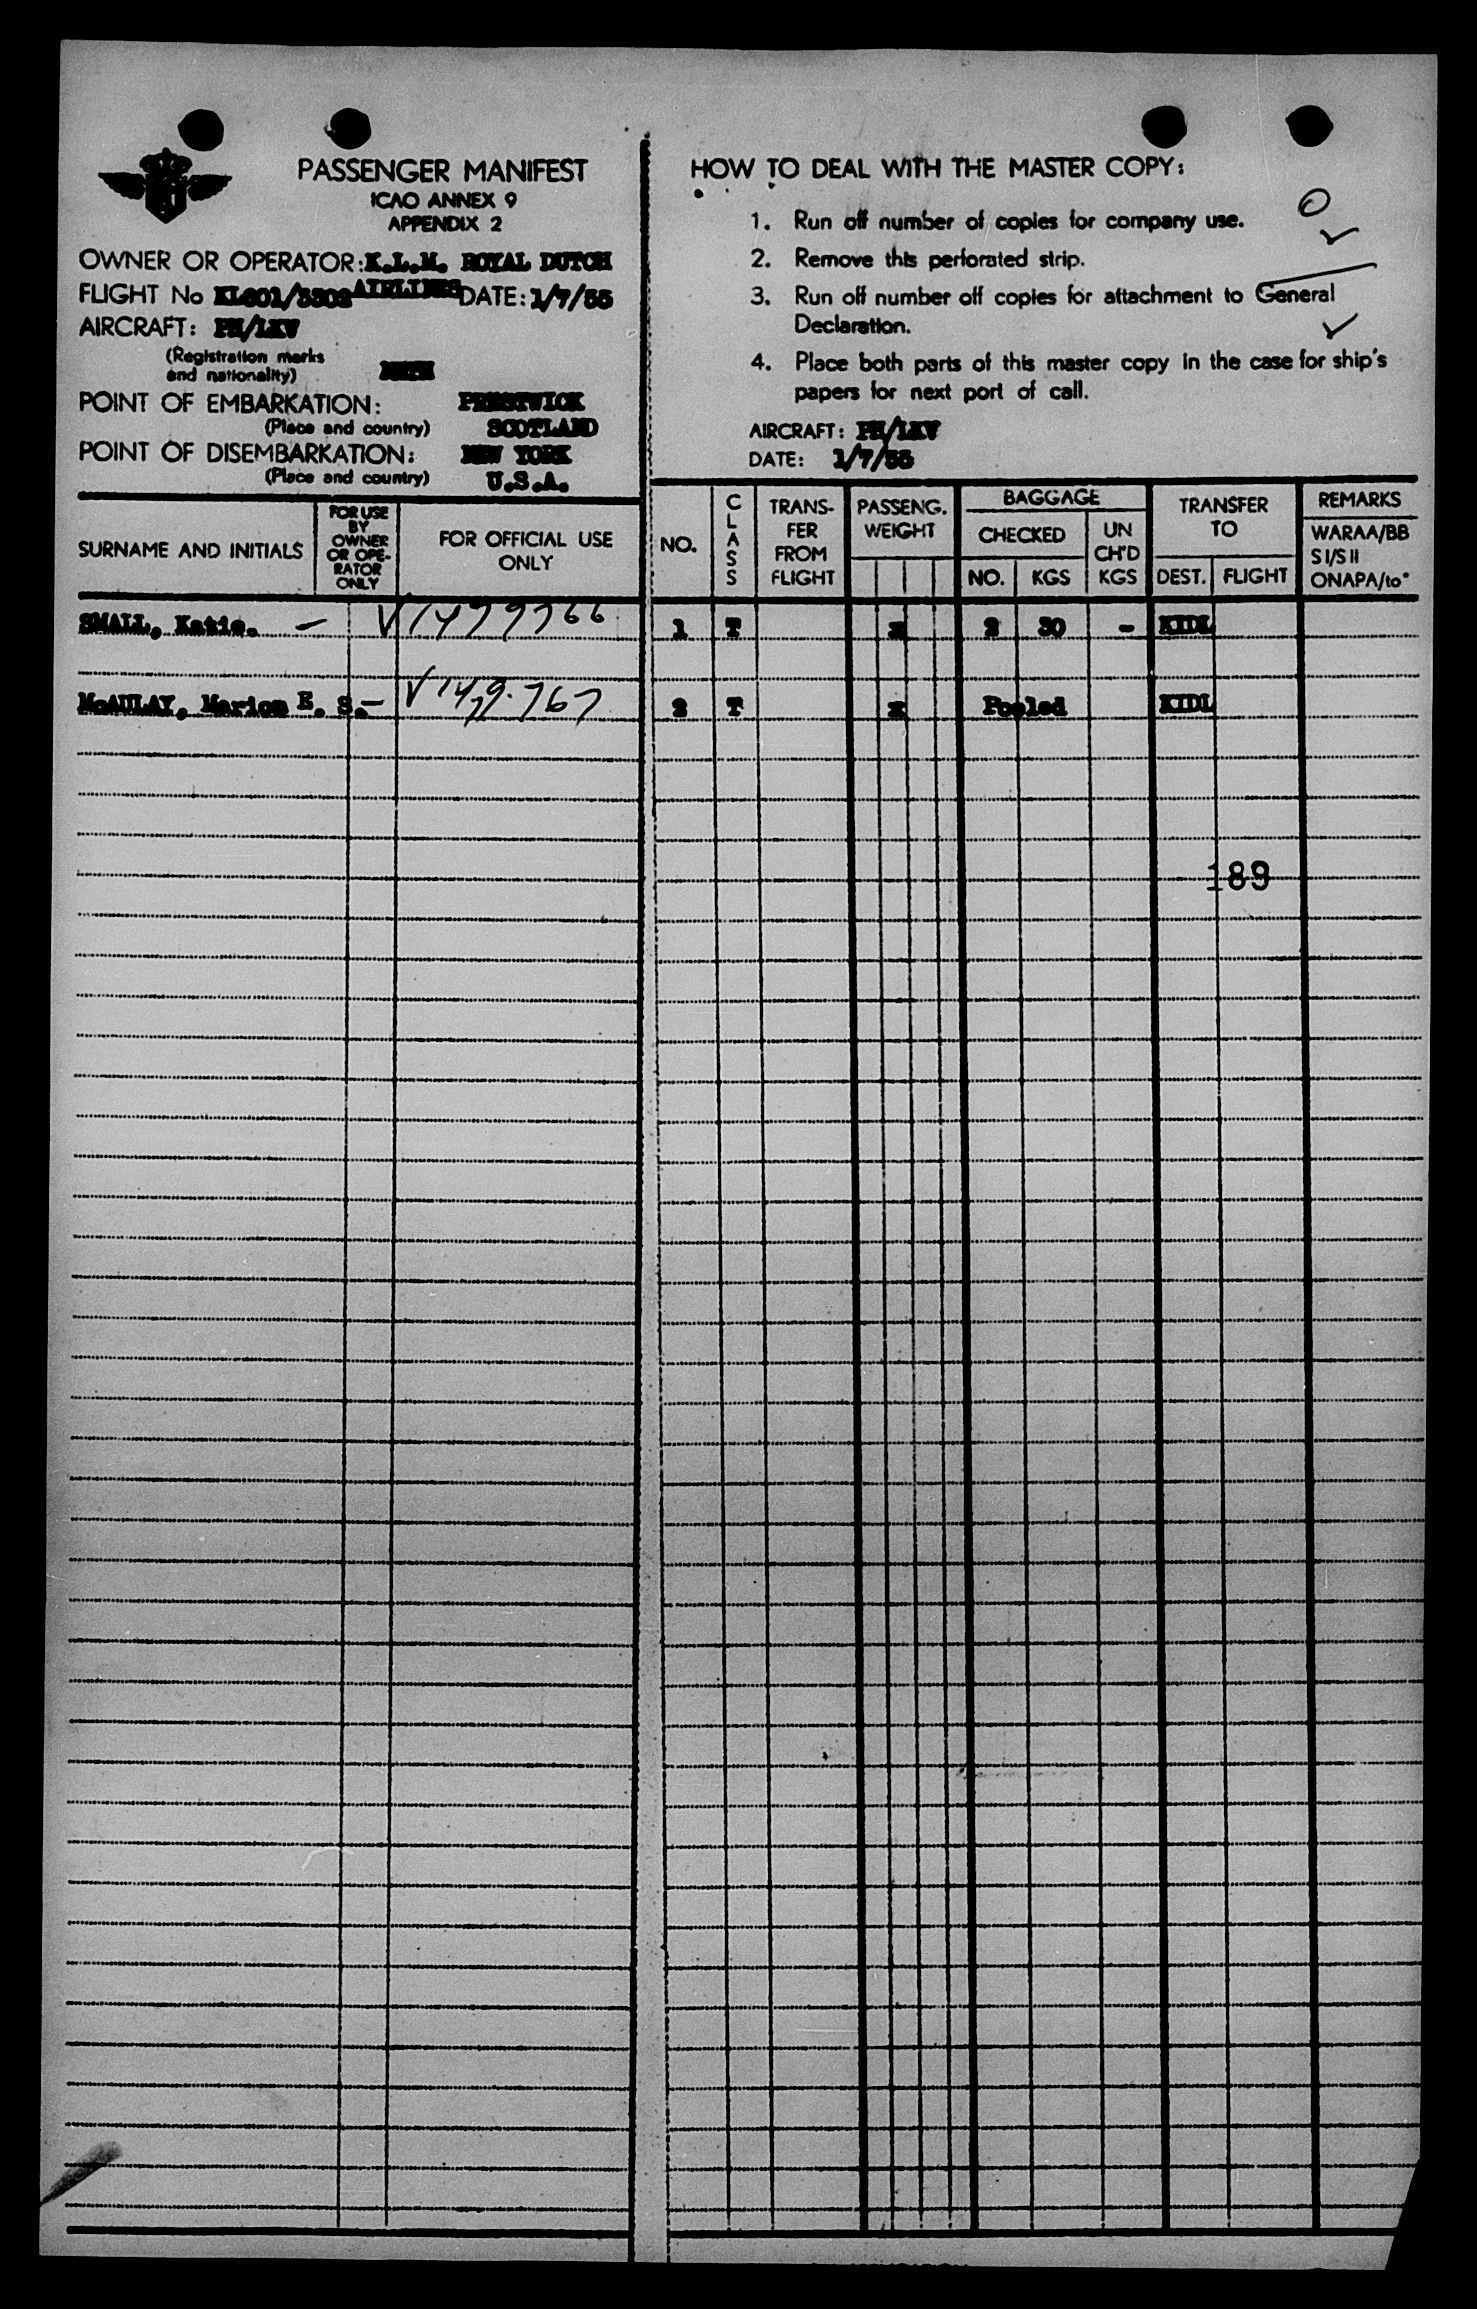 PASSENGER MANIFEST
ICAO ANNEX 9
APPENDIX 2
OWNER OR OPERATOR: K.L.M. ROYAL DUTCH
AIRLINES
FLIGHT No DATE: 1/7/55
AIRCRAFT: PH/LKV
(Registration marks
and nationality)
POINT OF EMBARKATION: PRESTWICK
(Place and country) SCOTLAND
POINT OF DISEMBARKATION: NEW YORK
(Place and country) U.S.A.
SURNAME AND INITIALS
FOR USE
BY
OWNER
OR OPE-
RATOR
ONLY
FOR OFFICIAL USE
ONLY
SMALL, Katie. — V1479766
McAULAY, Marion E. S.— V1479.767
HOW TO DEAL WITH THE MASTER COPY:
1. Run off number of copies for company use.
2. Remove this perforated strip.
3. Run off number off copies for attachment to General
Declaration.
4. Place both parts of this master copy in the case for ship's
papers for next port of call.
AIRCRAFT: PH/LKV
DATE: 1/7/55
NO.
CLASS
TRANS-
FER
FROM
FLIGHT
PASSENG.
WEIGHT
BAGGAGE
CHECKED
NO. KGS
UN
CH'D
KGS
TRANSFER
TO
DEST. FLIGHT
REMARKS
WARAA/BB
S I/S II
ONAPA/to"
1 T x 2 30 - KIDL
2 T x Pooled KIDL
189